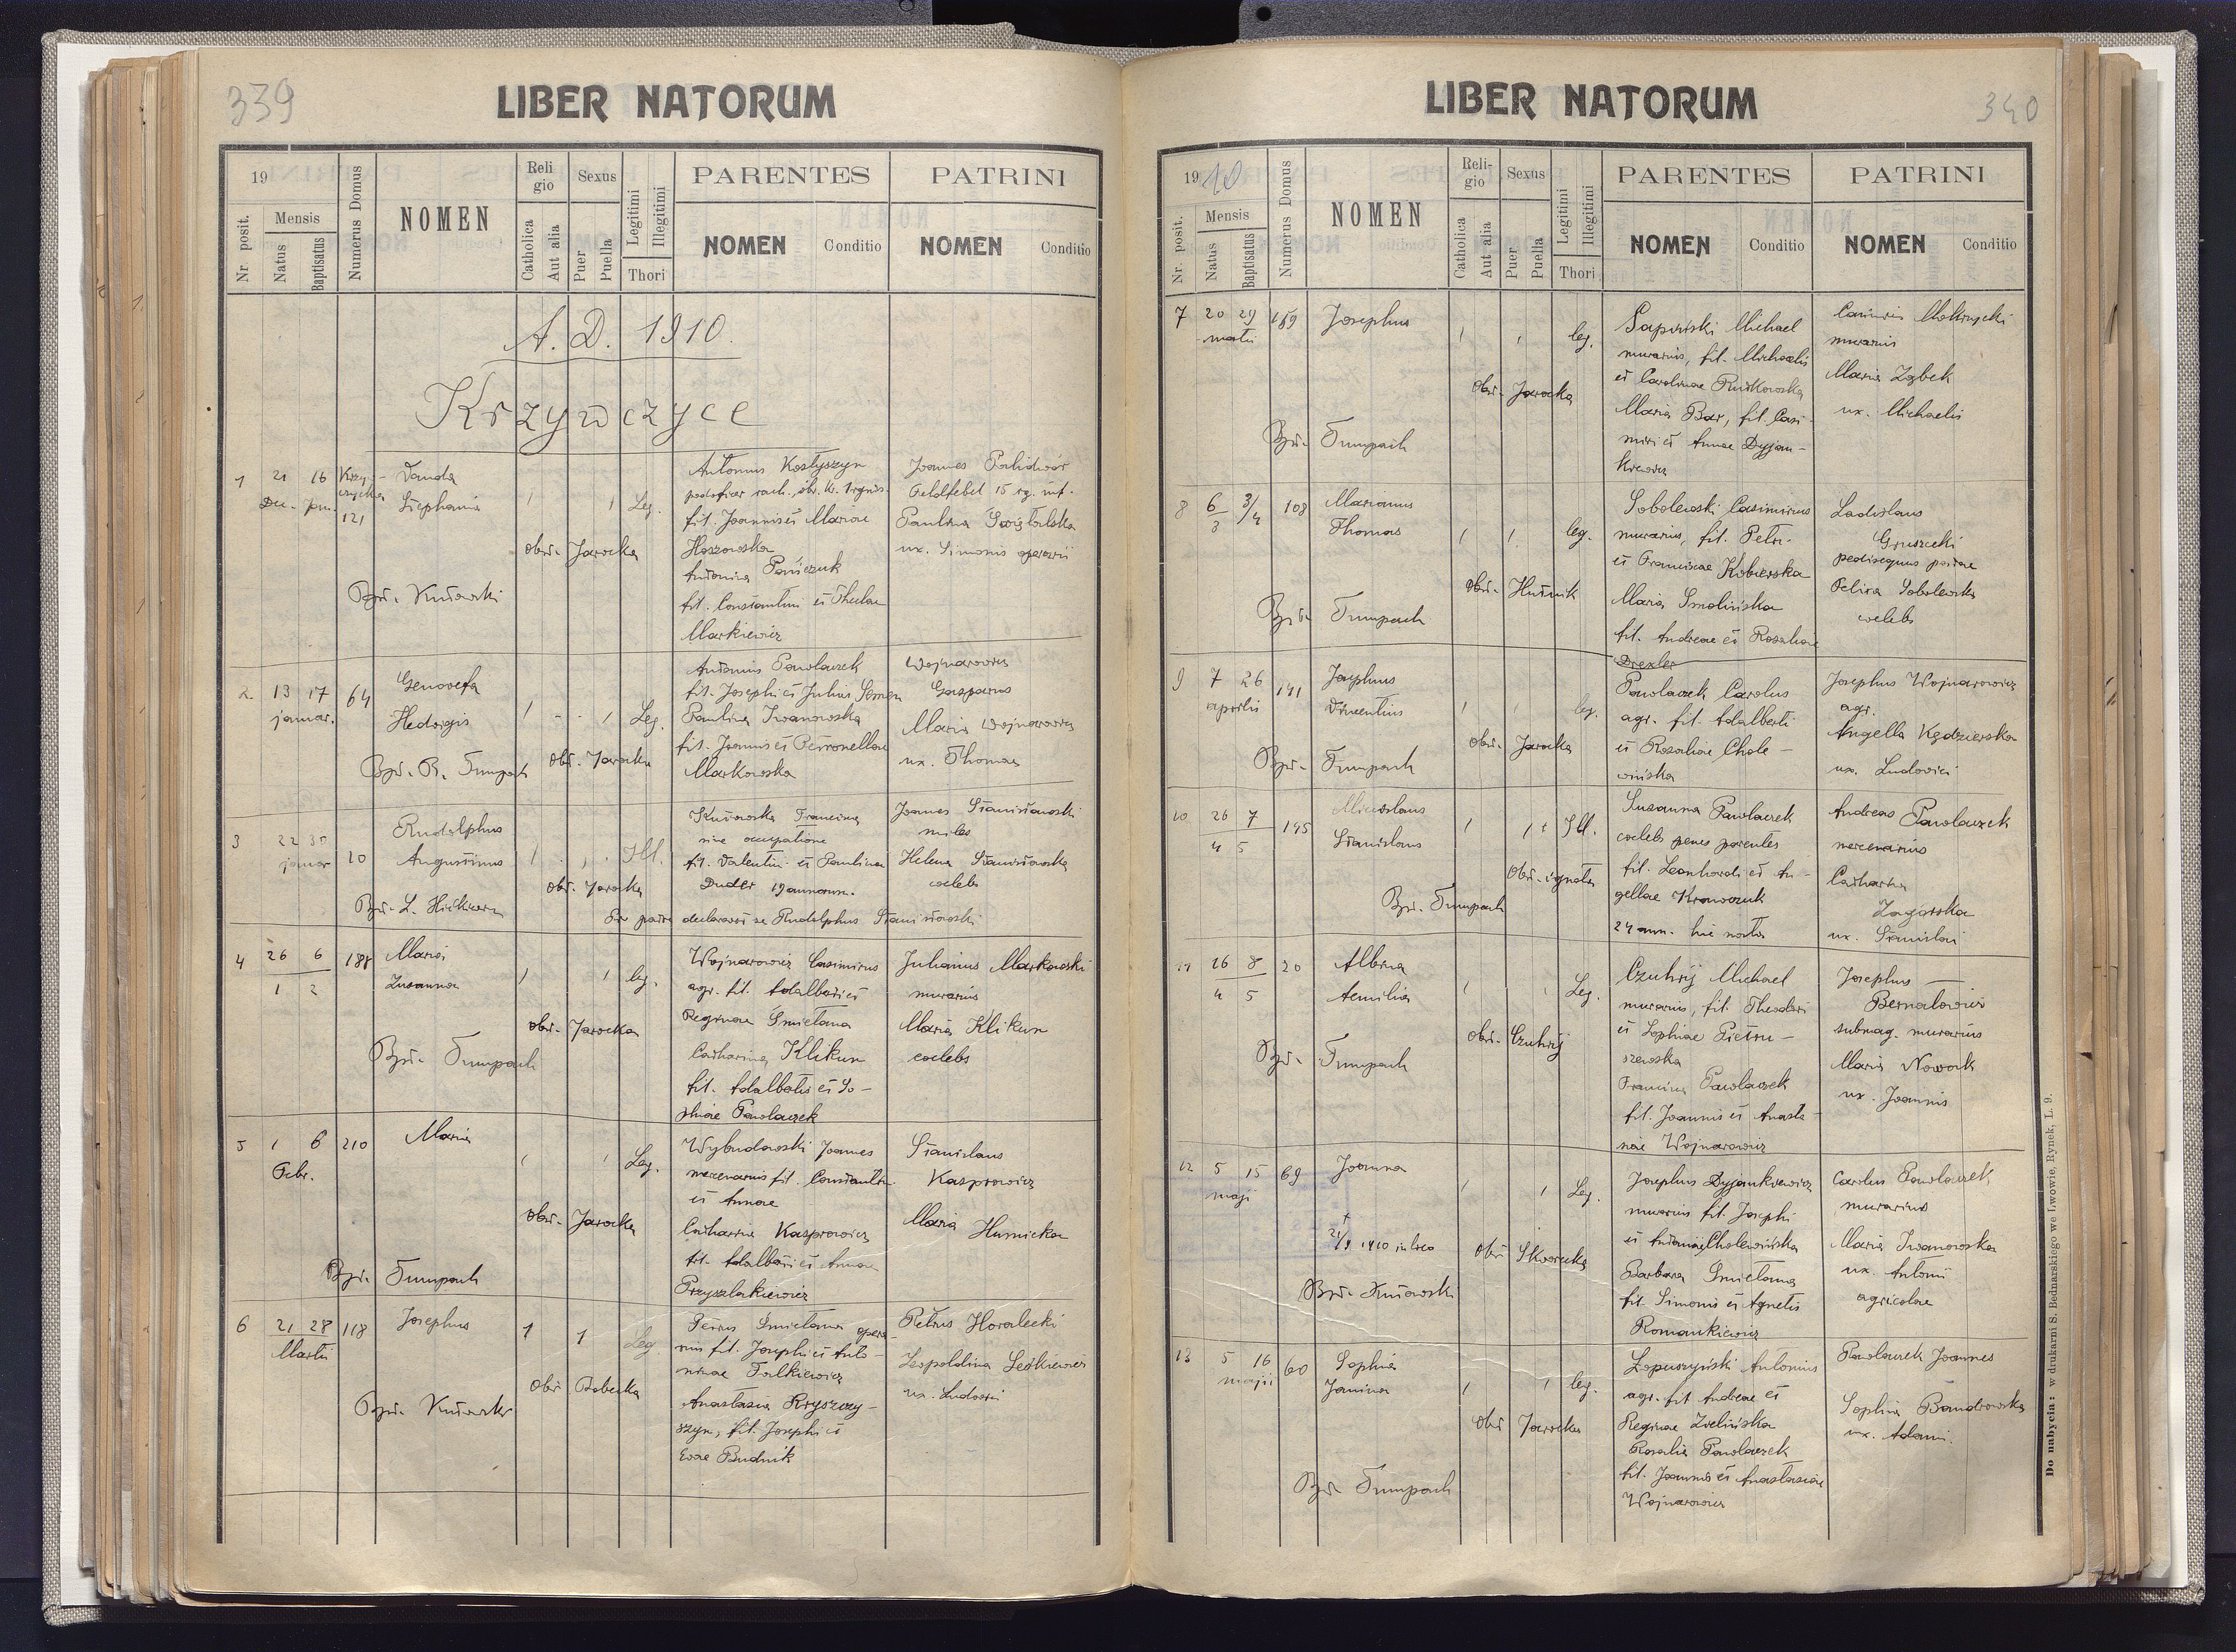 339
LIBER NATORUM
19
Nr. posit.
Mensis
Natus
Baptisatus
Numerus Domus
NOMEN
Religio
Catholica
Aut alia
Sexus
Puer
Puella
Legitimi
Illegitimi
Thori
PARENTES
NOMEN
Conditio
PATRINI
NOMEN
Conditio
A. D. 1910.
Krzywczyce
1
21 16
Dec. Jan.
121
Vanda
Stephania
1 1 Leg.
obst. Jarocka
Antonius Kostyszyn
fil. Joannis et Mariae
Hoszowska
Antonina Pańczuk
fil. Constantini et Theclae
Markiewicz
Joannes Palidwór
Feldfebel 15 rg. inf.
Paulina
ux. Simonis operarii
2
13 17
januar.
64
Genovefa
Hedvigis
1 1 Leg.
obst. Jarocka
Antonius Pawlaczek
fil. Josephi et Juliae
Paulina Iwanowska
fil. Joannis et Petronellae
Markowska
Wojnarowicz
Gasparus
Maria Wojnarowicz
ux. Thomae
3
22 30
januar
20
Rudolphus
Augustinus
1 Ill.
obst. Jarocka
Francisca
sine occupatione
fil. Valentini et Paulinae
Duder 19 annorum.
Pro patre declaravit se Rudolphus Stanisławski
Joannes Stanisławski
miles
Helena Stanisławska
coelebs
4
26 6
1 2
188
Maria
Zusanna
1 1 leg.
obst. Jarocka
Bapt. Tumpach
Wojnarowicz Casimirus
agr. fil. Adalberti et
Reginae Smietana
Catharina Klikun
fil. Adalberti et So-
phiae Pawlaczek
Julianus Markowski
murarius
Maria Klikun
coelebs
5
1 6
Febr.
210
Maria
1 1 Leg.
obst. Jarocka
Bapt. Tumpach
Wybudowski Joannes
mercenarius fil. Constantini
et Annae
Catharina Kasprowicz
fil. Adalberti et Annae
Przyszlakiewicz
Stanislaus
Kasprowicz
Maria
Humicka
6
21 28
Martii
118
Josephus
1 1 Leg.
obst. Bobecka
Petrus Smietana opera-
rius fil. Josephi et Anto-
ninae Falkiewicz
Anastasia Kryszczy-
szyn, fil. Josephi et
Evae Budnik
Petrus Horalecki
Leopoldina
ux. Ludovici
LIBER NATORUM
340
1910
Nr. posit.
Mensis
Natus
Baptisatus
Numerus Domus
NOMEN
Religio
Catholica
Aut alia
Sexus
Puer
Puella
Legitimi
Illegitimi
Thori
PARENTES
NOMEN
Conditio
PATRINI
NOMEN
Conditio
7
20 29
martii
159
Josephus
1 1 leg.
obst. Jarocka
Bapt. Tumpach
Michael
murarius, fil. Michaelis
et Carolinae Rutkowska
Maria Bar, fil. Casi-
miri et Annae Dyjan-
kiewicz
Casimirus
murarius
Maria Ząbek
ux. Michaelis
8
6/3 3/4
108
Marianus
Thomas
1 1 leg.
obst. Hutnik
Bapt. Tumpach
Sobolewski Casimirus
murarius, fil. Petri
et Franciscae Kobierska
Maria Smolińska
fil. Andreae et Rosaliae
Drexler
Ladislaus
Gruszecki
Felixa Sobolewska
coelebs
9
7 26
aprilis
141
Josephus
Vincentius
1 1 leg.
obst. Jarocka
Bapt. Tumpach
Pawlaczek Carolus
agr. fil. Adalberti
et Rosaliae Chole-
wińska
Josephus Wojnarowicz
agr.
Angella Kędzierska
ux. Ludovici
10
26 7
4 5
195
Miecislaus
Stanislaus
1 1 Ill.
Obst. ignota
Bapt. Tumpach
Susanna Pawlaczek
coelebs penes parentes
fil. Leonhardi et An-
gellae Krawczuk
24 ann. hic nata
Andreas Pawlaczek
mercenarius
Catharina
Zagórska
ux. Stanislai
11
26 8
4 5
20
Albina
Aemilia
1 1 Leg.
obst. Czuhrij
Bapt. Tumpach
Czuhrij Michael
murarius, fil. Theodori
et Sophiae Pietru-
szewska
Francisca Pawlaczek
fil. Joannis et Anasta-
siae Wojnarowicz
Josephus
Bernatowicz
submag. murarius
Maria Nowak
ux. Joannis
12
5 15
maji
69
Joanna
1 1 Leg.
† 21/9 1910 in loco
obst. Skworecka
Josephus Dyjankiewicz
murarius fil. Josephi
et Antoniae Cholewińska
Barbara Smietana
fil. Simonis et Agnetis
Romankiewicz
Carolus Pawlaczek
murarius
Maria Iwanowska
ux. Antonii
agricolae
13
5 16
majii
60
Sophia
Janina
1 1 leg.
obst. Jarocka
Bapt. Tumpach
Łopuszyński Antonius
agr. fil. Andreae et
Reginae Zielińska
Rosalia Pawlaczek
fil. Joannis et Anastasiae
Wojnarowicz
Pawlaczek Joannes
Sophia Bandrowska
ux. Adami.
Do nabycia: w drukarni S. Bednarskiego we Lwowie, Rynek, L. 9.